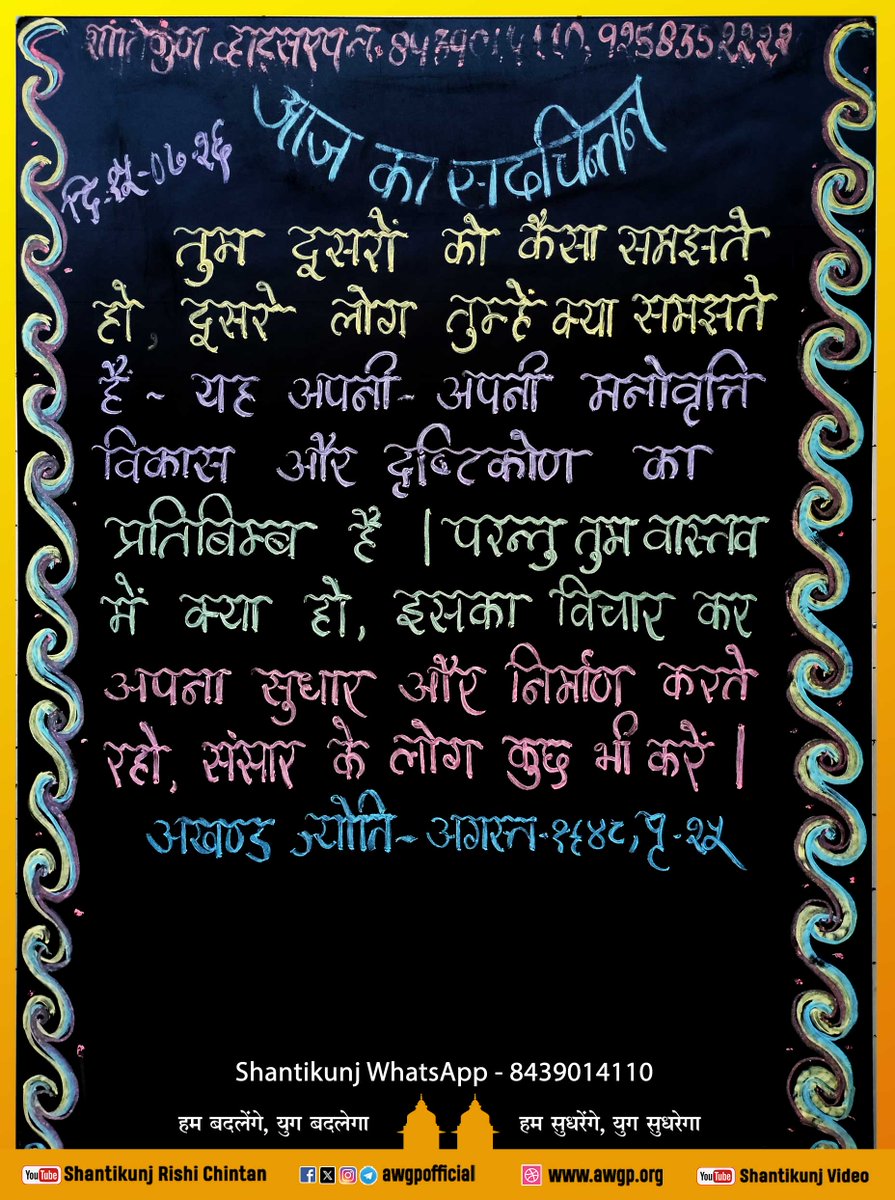 शांतिकुंज व्हाट्सएप न. ८४३९०१४११०, ९२५८३५२२२२
आज का सदचिन्तन
दि-२५-०७-२६
तुम दूसरों को कैसा समझते
हो, दूसरे लोग तुम्हें क्या समझते
हैं ~ यह अपनी-अपनी मनोवृत्ति
विकास और दृष्टिकोण का
प्रतिबिम्ब है | परन्तु तुम वास्तव
में क्या हो, इसका विचार कर
अपना सुधार और निर्माण करते
रहो, संसार के लोग कुछ भी करें |
अखण्ड ज्योति - अगस्त-१९४८, पृ-२५
Shantikunj WhatsApp - 8439014110
हम बदलेंगे, युग बदलेगा हम सुधरेंगे, युग सुधरेगा
YouTube Shantikunj Rishi Chintan awgpofficial www.awgp.org YouTube Shantikunj Video